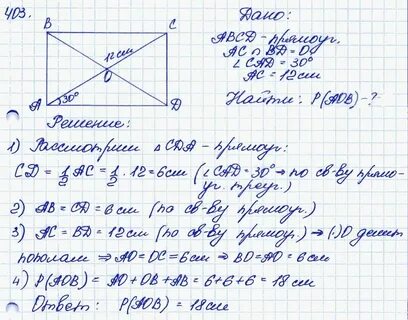 403.
Дано:
B C
ABCD - прямоуг.
AC ∩ BD = O
∠CAD = 30°
AC = 12см
12см
O
30°
A D
Найти: P(AOB) - ?
Решение:
1) Рассмотрим △CDA - прямоуг:
CD = 1/2 AC = 1/2 · 12 = 6см (∠CAD = 30° → по св-ву прямо-
уг. треуг.)
2) AB = CD = 6 см (по св-ву прямоуг.)
3) AC = BD = 12см (по св-ву прямоуг.) → (·)O делит
пополам ⇒ AO = OC = 6см ⇒ BO = AO = 6см
4) P(AOB) = AO + OB + AB = 6 + 6 + 6 = 18 см
Ответ: P(AOB) = 18см